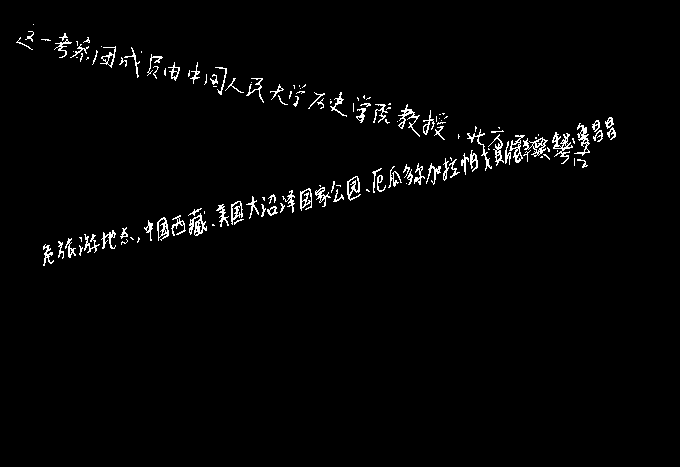 这一考察团成员由中国人民大学历史学院教授,北京
危旅游地点,中国西藏、美国大沼泽国家公园、厄瓜多尔加拉帕戈斯群岛